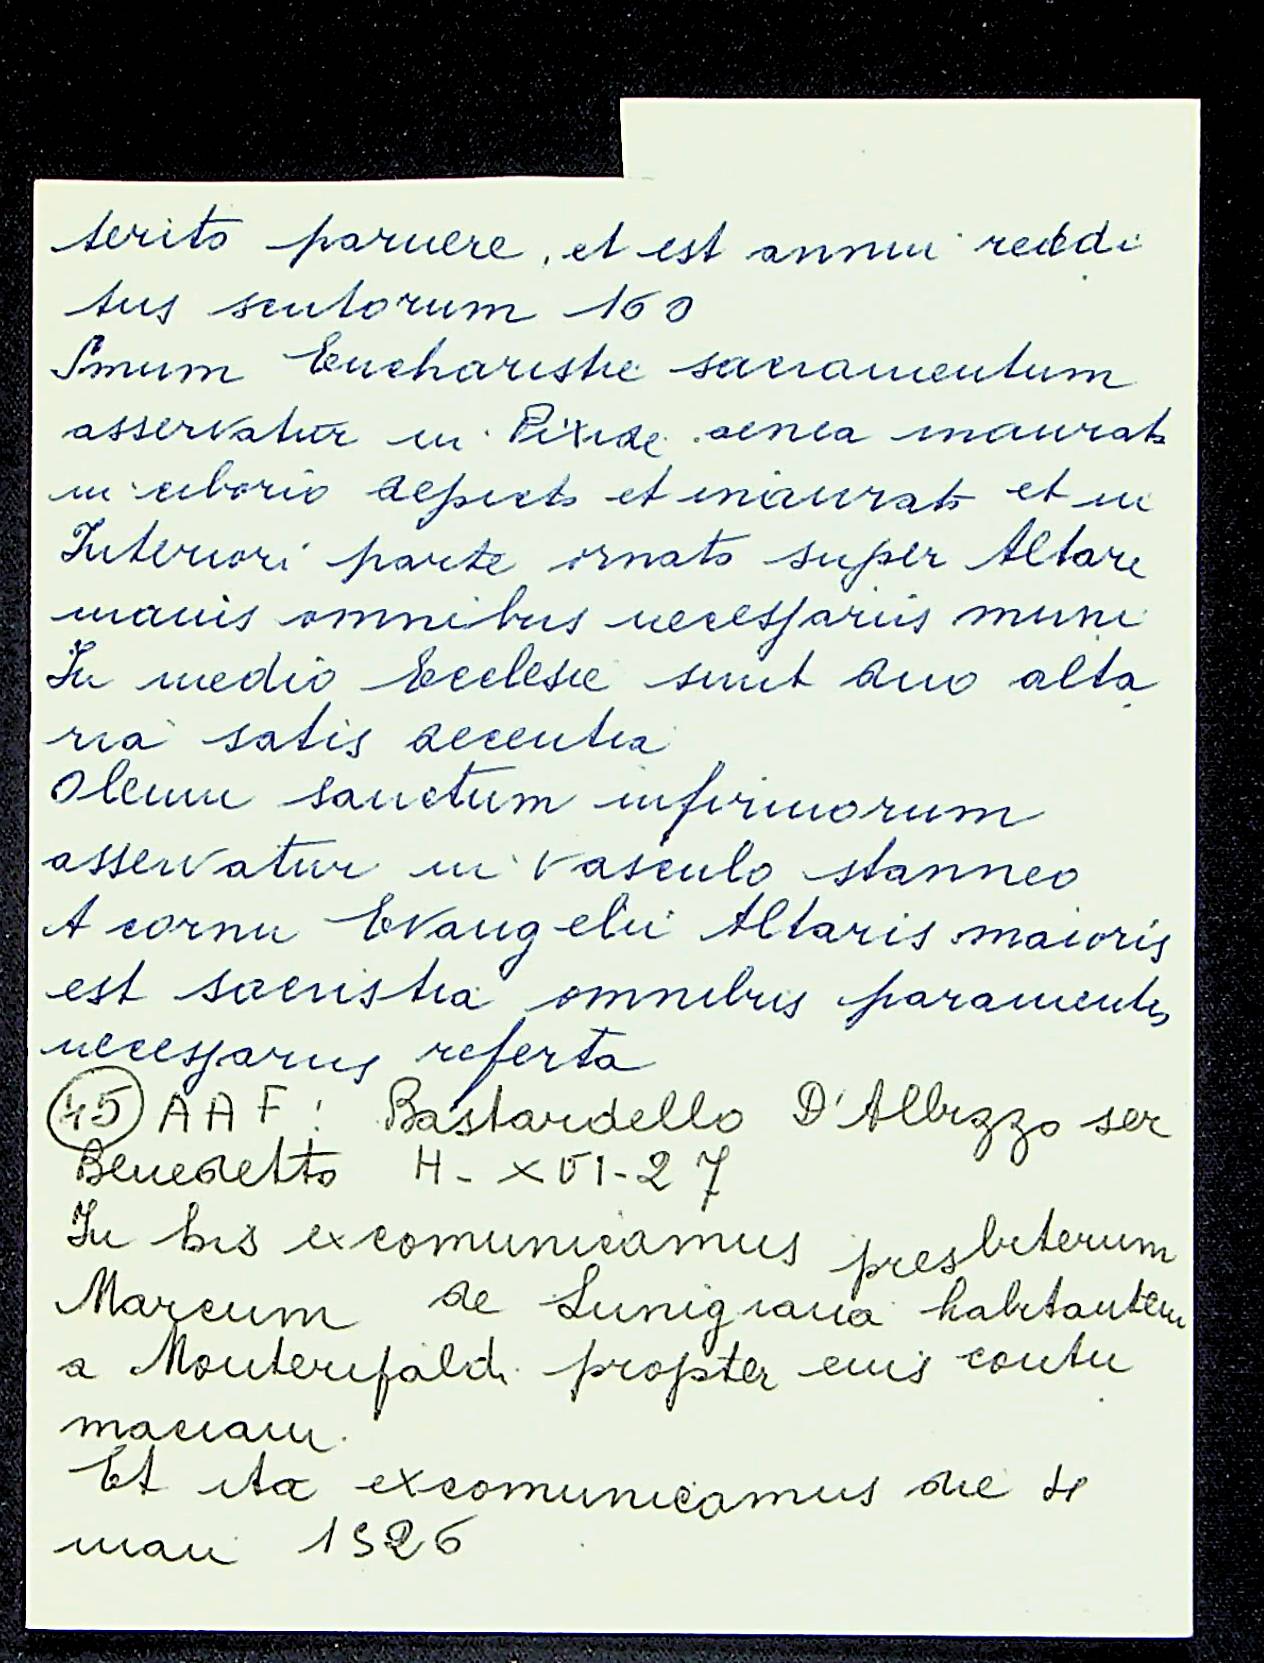 terito paruere, et est annui reddi
tus scutorum 160
Smum Eucharistie sacramentum
asservatur in Pixide aenea inaurata
in ciborio depicto et inaurato et in
Interiori parte ornato super Altare
maius omnibus necessariis muni
In medio Ecclesie sunt duo alta
ria satis decentia
Oleum sanctum infirmorum
asservatur in vasculo stanneo
A cornu Evangelii Altaris maioris
est sacristia omnibus paramentis
necessariis referta
45 AAF: Bastardello D'Albizzo ser
Benedetto H-XVI-27
In his excomunicamus presbiterum
Marcum de Lunigiana habitantem
a Monterifaldi propter eius contu
maciam.
Et ita excomunicamus die 4
maii 1526